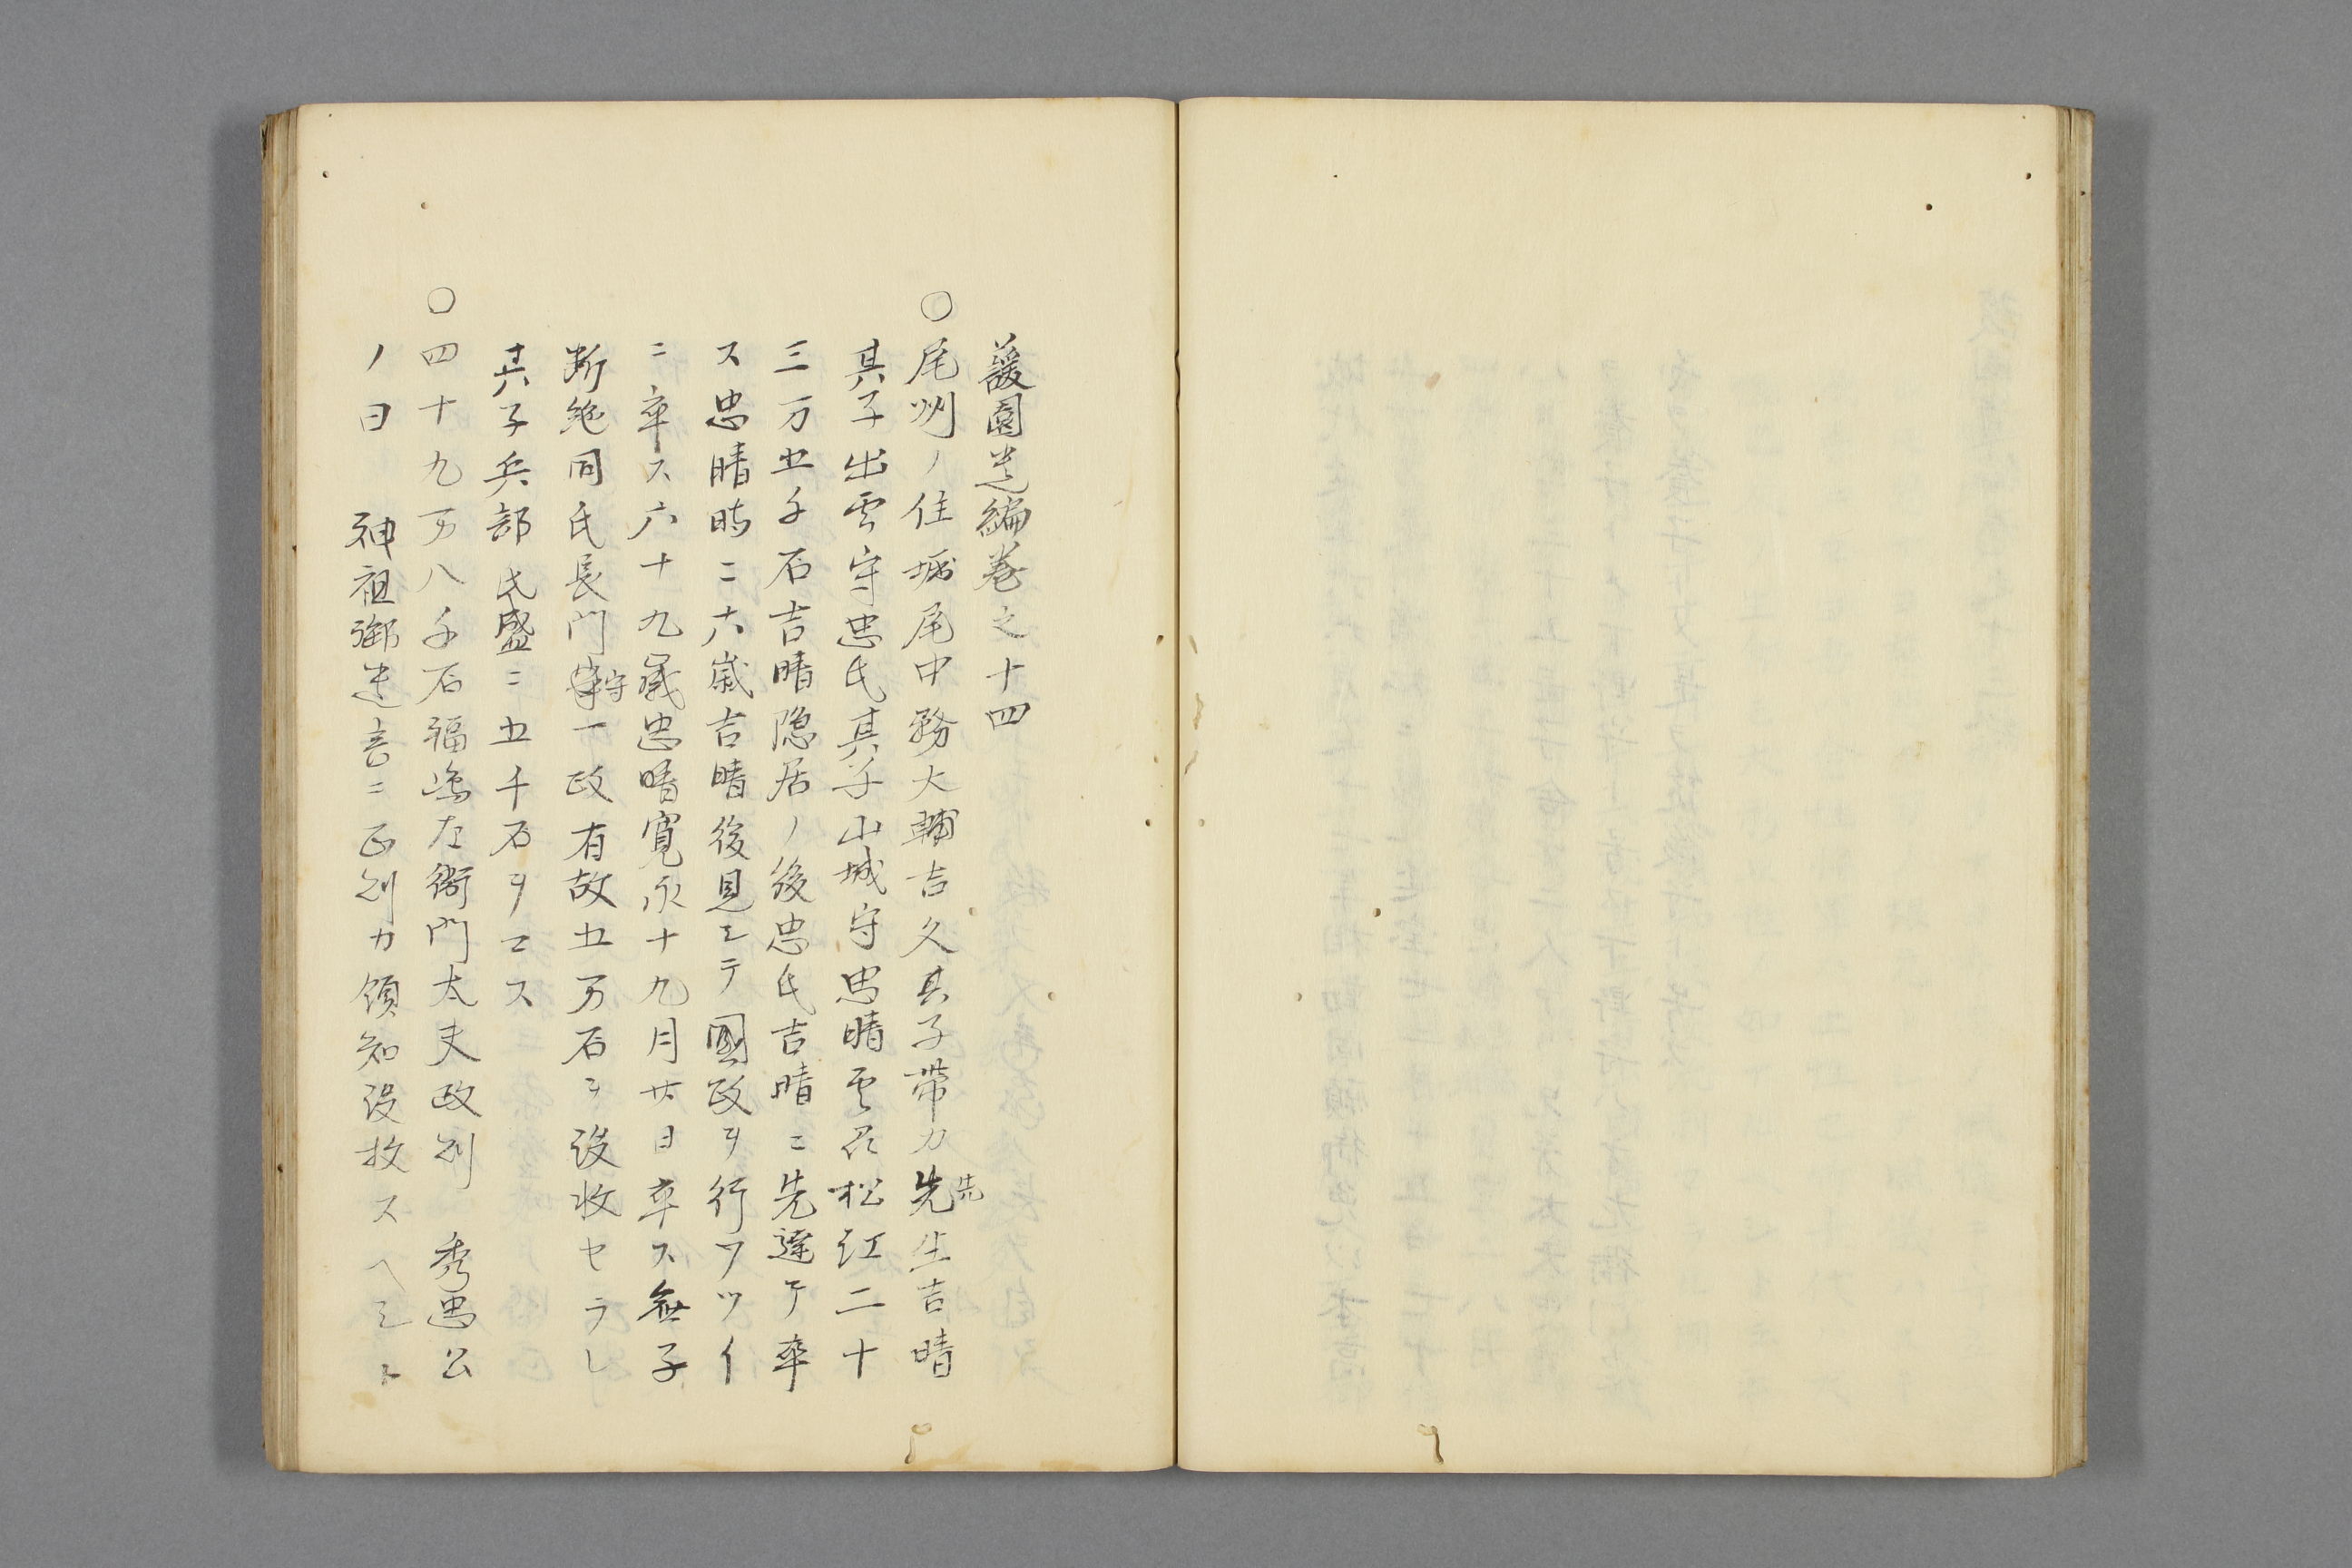 蘐園遺編巻之十四
〇尾州ノ住堀尾中務大輔吉久其子帯刀先生吉晴
其子出雲守忠氏其子山城守忠晴雲州松江二十
三万五千石吉晴隠居ノ後忠氏吉晴ニ先達テ卒
ス忠晴時ニ六歳吉晴後見シテ國政ヲ行フツイ
ニ卒ス六十九歳忠晴寛永十九月廿日卒ス無子
断絶同氏長門守一政有故五万石ヲ没收セラレ
其子兵部氏盛ニ五千石ヲ玉ス
〇四十九万八千石福嶋左衛門太夫政則 秀忠公
ノ曰 神祖御遺言ニ正則カ領知没收スヘシト